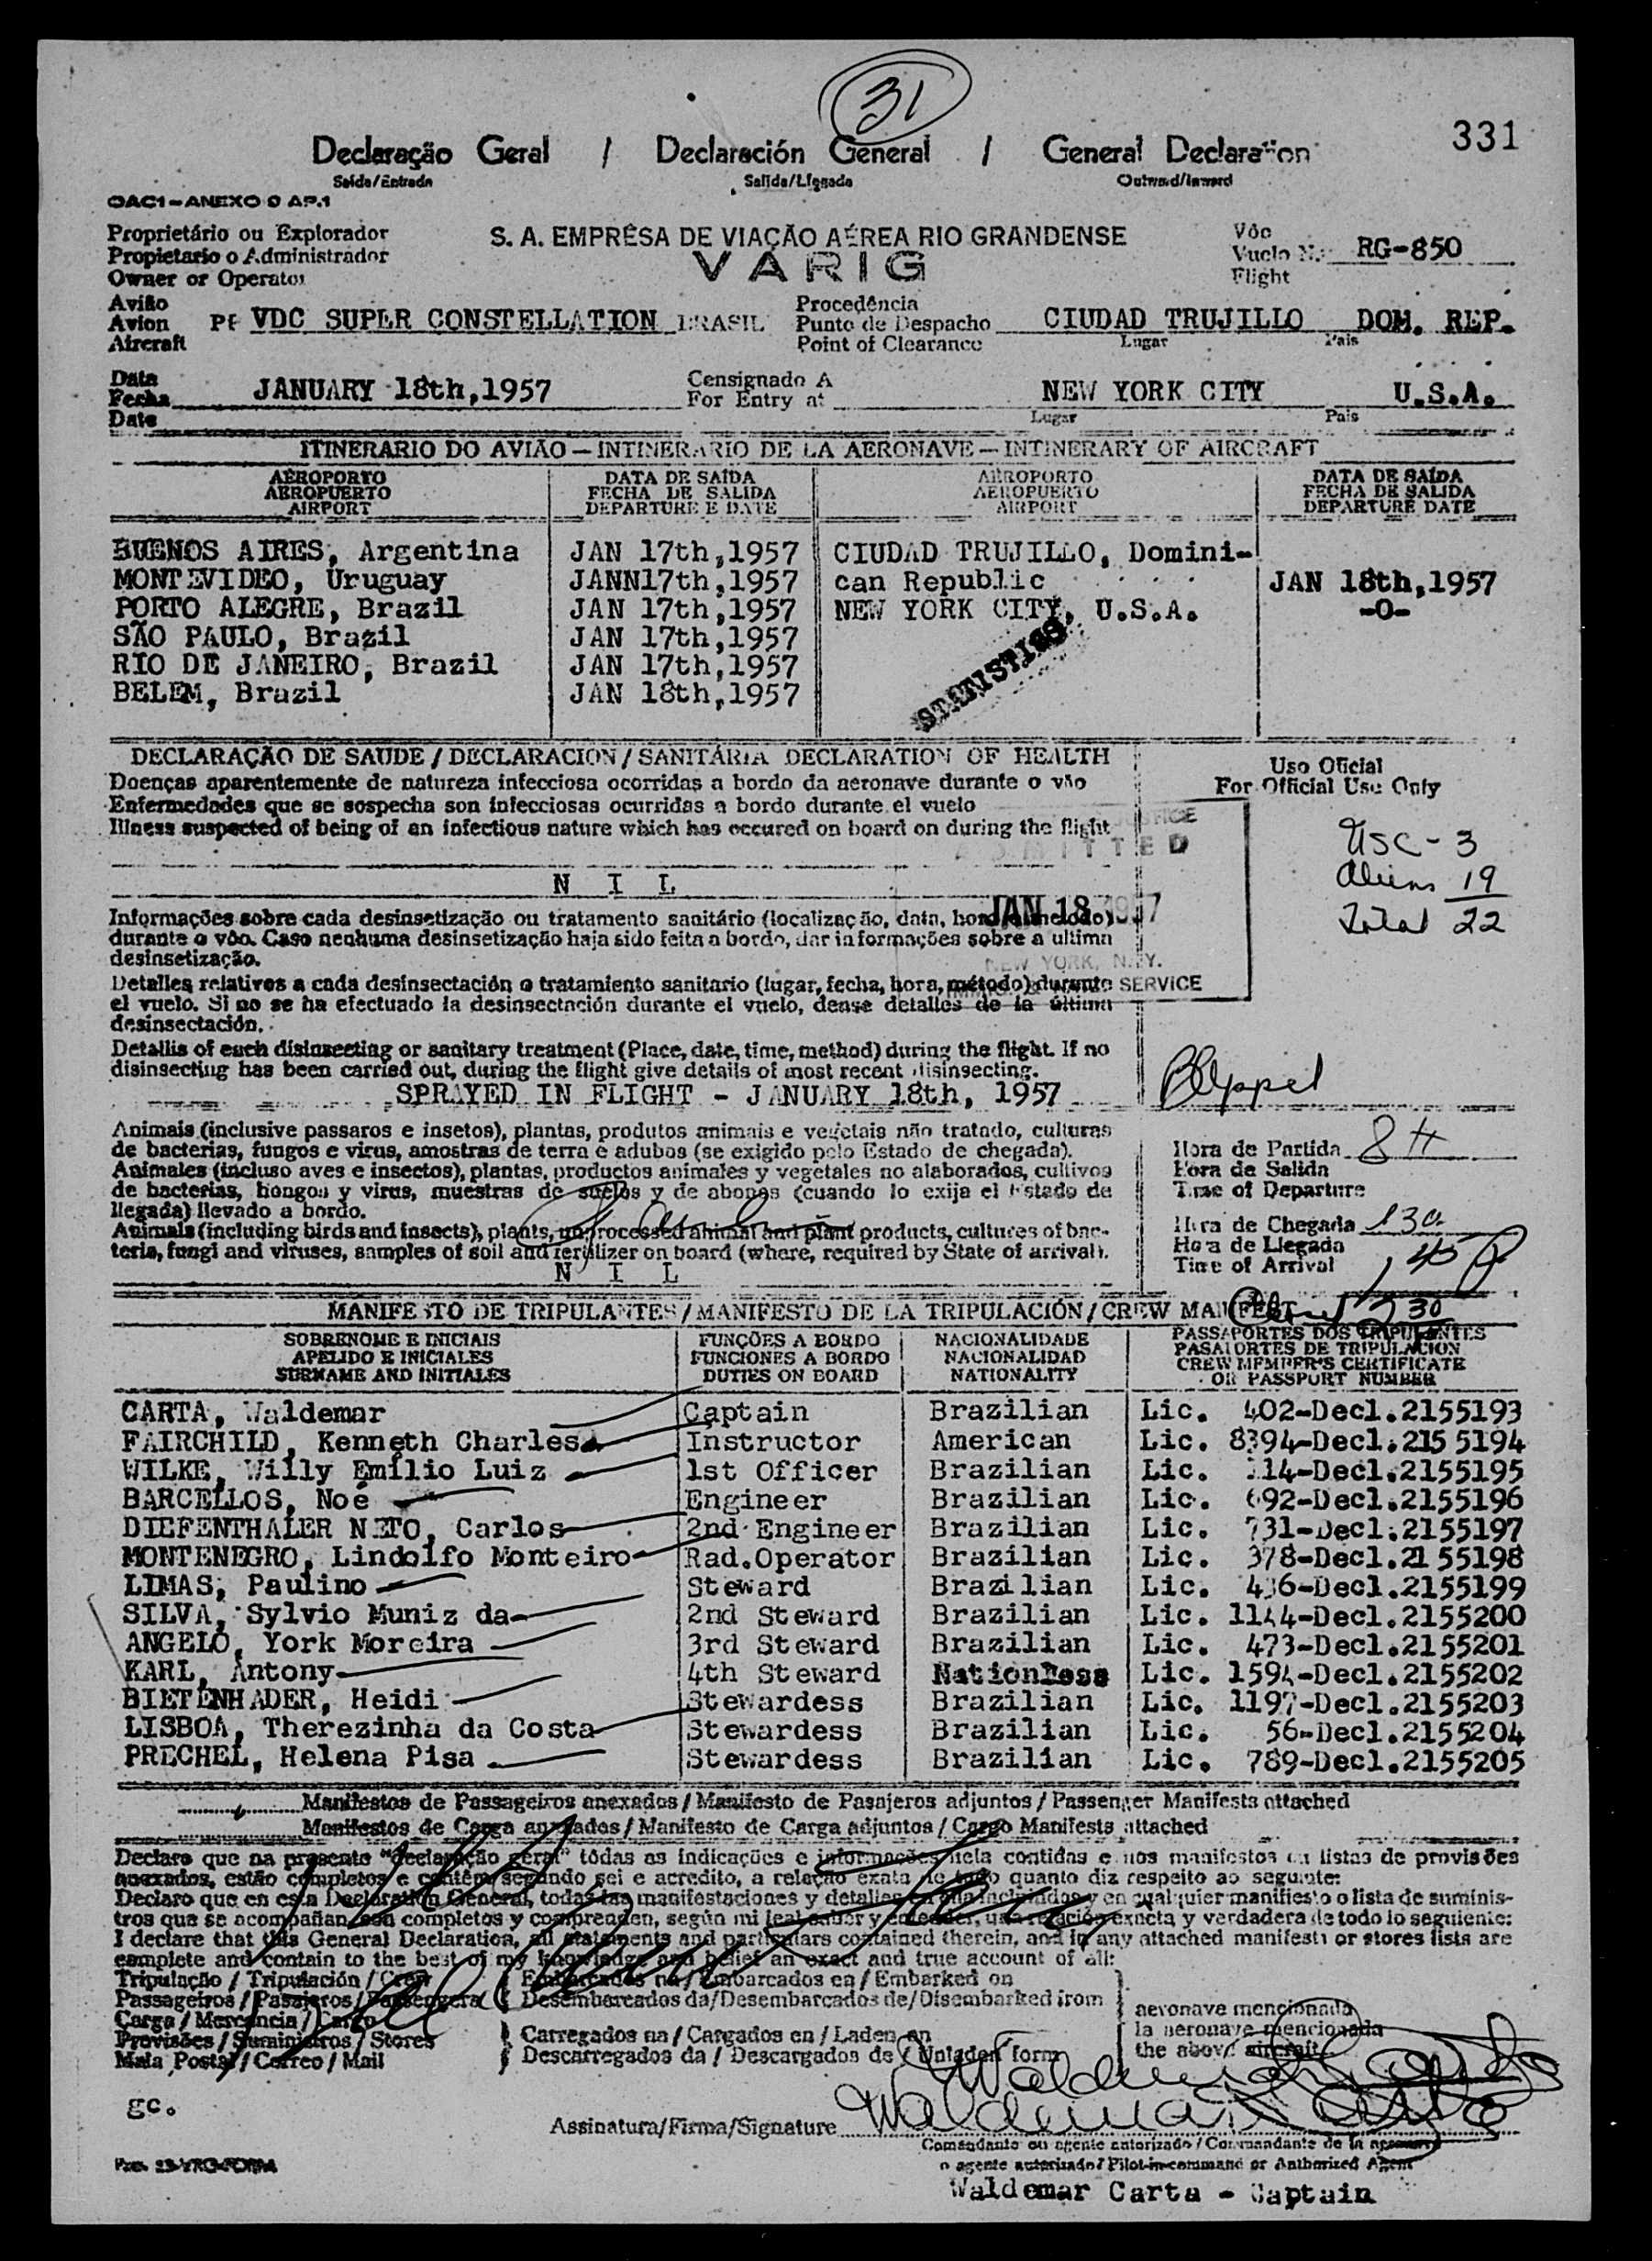 31
331
Declaração Geral / Declaración General / General Declaration
Saída/Entrada Salida/Llegada Outward/Inward
OACI-ANEXO 9 AP.1
Proprietário ou Explorador
Propietario o Administrador
Owner or Operator
S. A. EMPRÊSA DE VIAÇÃO AÉREA RIO GRANDENSE
VARIG
Vôo
Vuelo N.:
Flight
RG-850
Avião
Avion
Aircraft
PP VDC SUPER CONSTELLATION BRASIL
Procedência
Punto de Despacho
Point of Clearance
CIUDAD TRUJILLO DOM. REP.
Lugar Pais
Data
Fecha
Date
JANUARY 18th,1957
Consignado A
For Entry at
NEW YORK CITY U.S.A.
Lugar Pais
ITINERARIO DO AVIÃO — INTINERARIO DE LA AERONAVE — INTINERARY OF AIRCRAFT
AEROPORTO
AEROPUERTO
AIRPORT
DATA DE SAÍDA
FECHA DE SALIDA
DEPARTURE E DATE
AEROPORTO
AEROPUERTO
AIRPORT
DATA DE SAÍDA
FECHA DE SALIDA
DEPARTURE DATE
BUENOS AIRES, Argentina JAN 17th,1957 CIUDAD TRUJILLO, Domini-
MONTEVIDEO, Uruguay JANN17th,1957 can Republic JAN 18th,1957
PORTO ALEGRE, Brazil JAN 17th,1957 NEW YORK CITY, U.S.A. -0-
SÃO PAULO, Brazil JAN 17th,1957
RIO DE JANEIRO, Brazil JAN 17th,1957
BELEM, Brazil JAN 18th,1957
STATISTICS
DECLARAÇÃO DE SAUDE / DECLARACION / SANITÁRIA DECLARATION OF HEALTH
Doenças aparentemente de natureza infecciosa ocorridas a bordo da aeronave durante o vão
Enfermedades que se sospecha son infecciosas ocurridas a bordo durante el vuelo
Illness suspected of being of an infectious nature which has occured on board on during the flight
N I L
Uso Oficial
For Official Use Only
USC - 3
Aliens 19
Total 22
ADMITTED
JAN 18 1957
NEW YORK, N.Y.
SERVICE
Informações sobre cada desinsetização ou tratamento sanitário (localização, data, hora e método)
durante o vôo. Caso nenhuma desinsetização haja sido feita a bordo, dar informações sobre a ultima
desinsetização.
Detalles relativos a cada desinsectación o tratamiento sanitario (lugar, fecha, hora, método) durante
el vuelo. Si no se ha efectuado la desinsectación durante el vuelo, dense detalles de la última
desinsectación.
Detallis of each disinsecting or sanitary treatment (Place, date, time, method) during the flight. If no
disinsecting has been carried out, during the flight give details of most recent disinsecting.
SPRAYED IN FLIGHT - JANUARY 18th, 1957
Animais (inclusive passaros e insetos), plantas, produtos animais e vegetais não tratado, culturas
de bacterias, fungos e virus, amostras de terra e adubos (se exigido pelo Estado de chegada).
Animales (incluso aves e insectos), plantas, productos animales y vegetales no alaborados, cultivos
de bacterias, hongos y virus, muestras de suelos y de abonos (cuando lo exija el Estado de
llegada) llevado a bordo.
Animals (including birds and insects), plants, unprocessed animal and plant products, cultures of bac-
teria, fungi and viruses, samples of soil and fertilizer on board (where, required by State of arrival).
N I L
Hora de Partida 8 H
Hora de Salida
Time of Departure
Hora de Chegada 130
Hora de Llegada
Time of Arrival 145
230
MANIFESTO DE TRIPULANTES / MANIFESTO DE LA TRIPULACIÓN / CREW MANIFEST
SOBRENOME E INICIAIS
APELIDO E INICIALES
SURNAME AND INITIALES
FUNÇÕES A BORDO
FUNCIONES A BORDO
DUTIES ON BOARD
NACIONALIDADE
NACIONALIDAD
NATIONALITY
PASSAPORTES DOS TRIPULANTES
PASAPORTES DE TRIPULACION
CREW MEMBER'S CERTIFICATE
OR PASSPORT NUMBER
CARTA, Waldemar Captain Brazilian Lic. 402-Decl.2155193
FAIRCHILD, Kenneth Charles Instructor American Lic. 8394-Decl.215 5194
WILKE, Willy Emílio Luiz 1st Officer Brazilian Lic. 114-Decl.2155195
BARCELLOS, Noé Engineer Brazilian Lic. 692-Decl.2155196
DIEFENTHALER NETO, Carlos 2nd Engineer Brazilian Lic. 731-Decl.2155197
MONTENEGRO, Lindolfo Monteiro Rad.Operator Brazilian Lic. 378-Decl.2155198
LIMAS, Paulino Steward Brazilian Lic. 436-Decl.2155199
SILVA, Sylvio Muniz da 2nd Steward Brazilian Lic. 1144-Decl.2155200
ANGELO, York Moreira 3rd Steward Brazilian Lic. 473-Decl.2155201
KARL, Antony 4th Steward Nationless Lic. 1594-Decl.2155202
BIETENHADER, Heidi Stewardess Brazilian Lic. 1197-Decl.2155203
LISBOA, Therezinha da Costa Stewardess Brazilian Lic. 56-Decl.2155204
PRECHEL, Helena Pisa Stewardess Brazilian Lic. 789-Decl.2155205
Manifestos de Passageiros anexados / Manifesto de Pasajeros adjuntos / Passenger Manifests attached
Manifestos de Carga anexados / Manifesto de Carga adjuntos / Cargo Manifests attached
Declaro que na presente "declaração geral" tôdas as indicações e informações nela contidas e nos manifestos ou listas de provisões
anexados, estão completos e contêm segundo sei e acredito, a relação exata de todo quanto diz respeito ao seguinte:
Declaro que en esta Declaration General, todas las manifestaciones y detalles en ella incluidos y en cualquier manifiesto o lista de suminis-
tros que se acompañan, son completos y comprenden, según mi leal saber y entender, una relación exacta y verdadera de todo lo seguiente:
I declare that this General Declaration, all statements and particulars contained therein, and in any attached manifests or stores lists are
complete and contain to the best of my knowledge and belief an exact and true account of all:
Tripulação / Tripulación / Crew
Passageiros / Pasajeros / Passengers
Carga / Mercancia / Cargo
Provisões / Suministros / Stores
Mala Postal / Correo / Mail
Embarcados na / Embarcados en / Embarked on
Desembarcados da / Desembarcados de / Disembarked from
Carregados na / Cargados en / Laden on
Descarregados da / Descargados de / Unladen form
aeronave mencionada
la aeronave mencionada
the above aircraft
gc.
Waldemar Carta
Assinatura/Firma/Signature Waldemar Carta
Comandante ou agente autorizado / Commandante de la aeronave
o agente autorizado / Pilot-in-command or Authorized Agent
Waldemar Carta - Captain